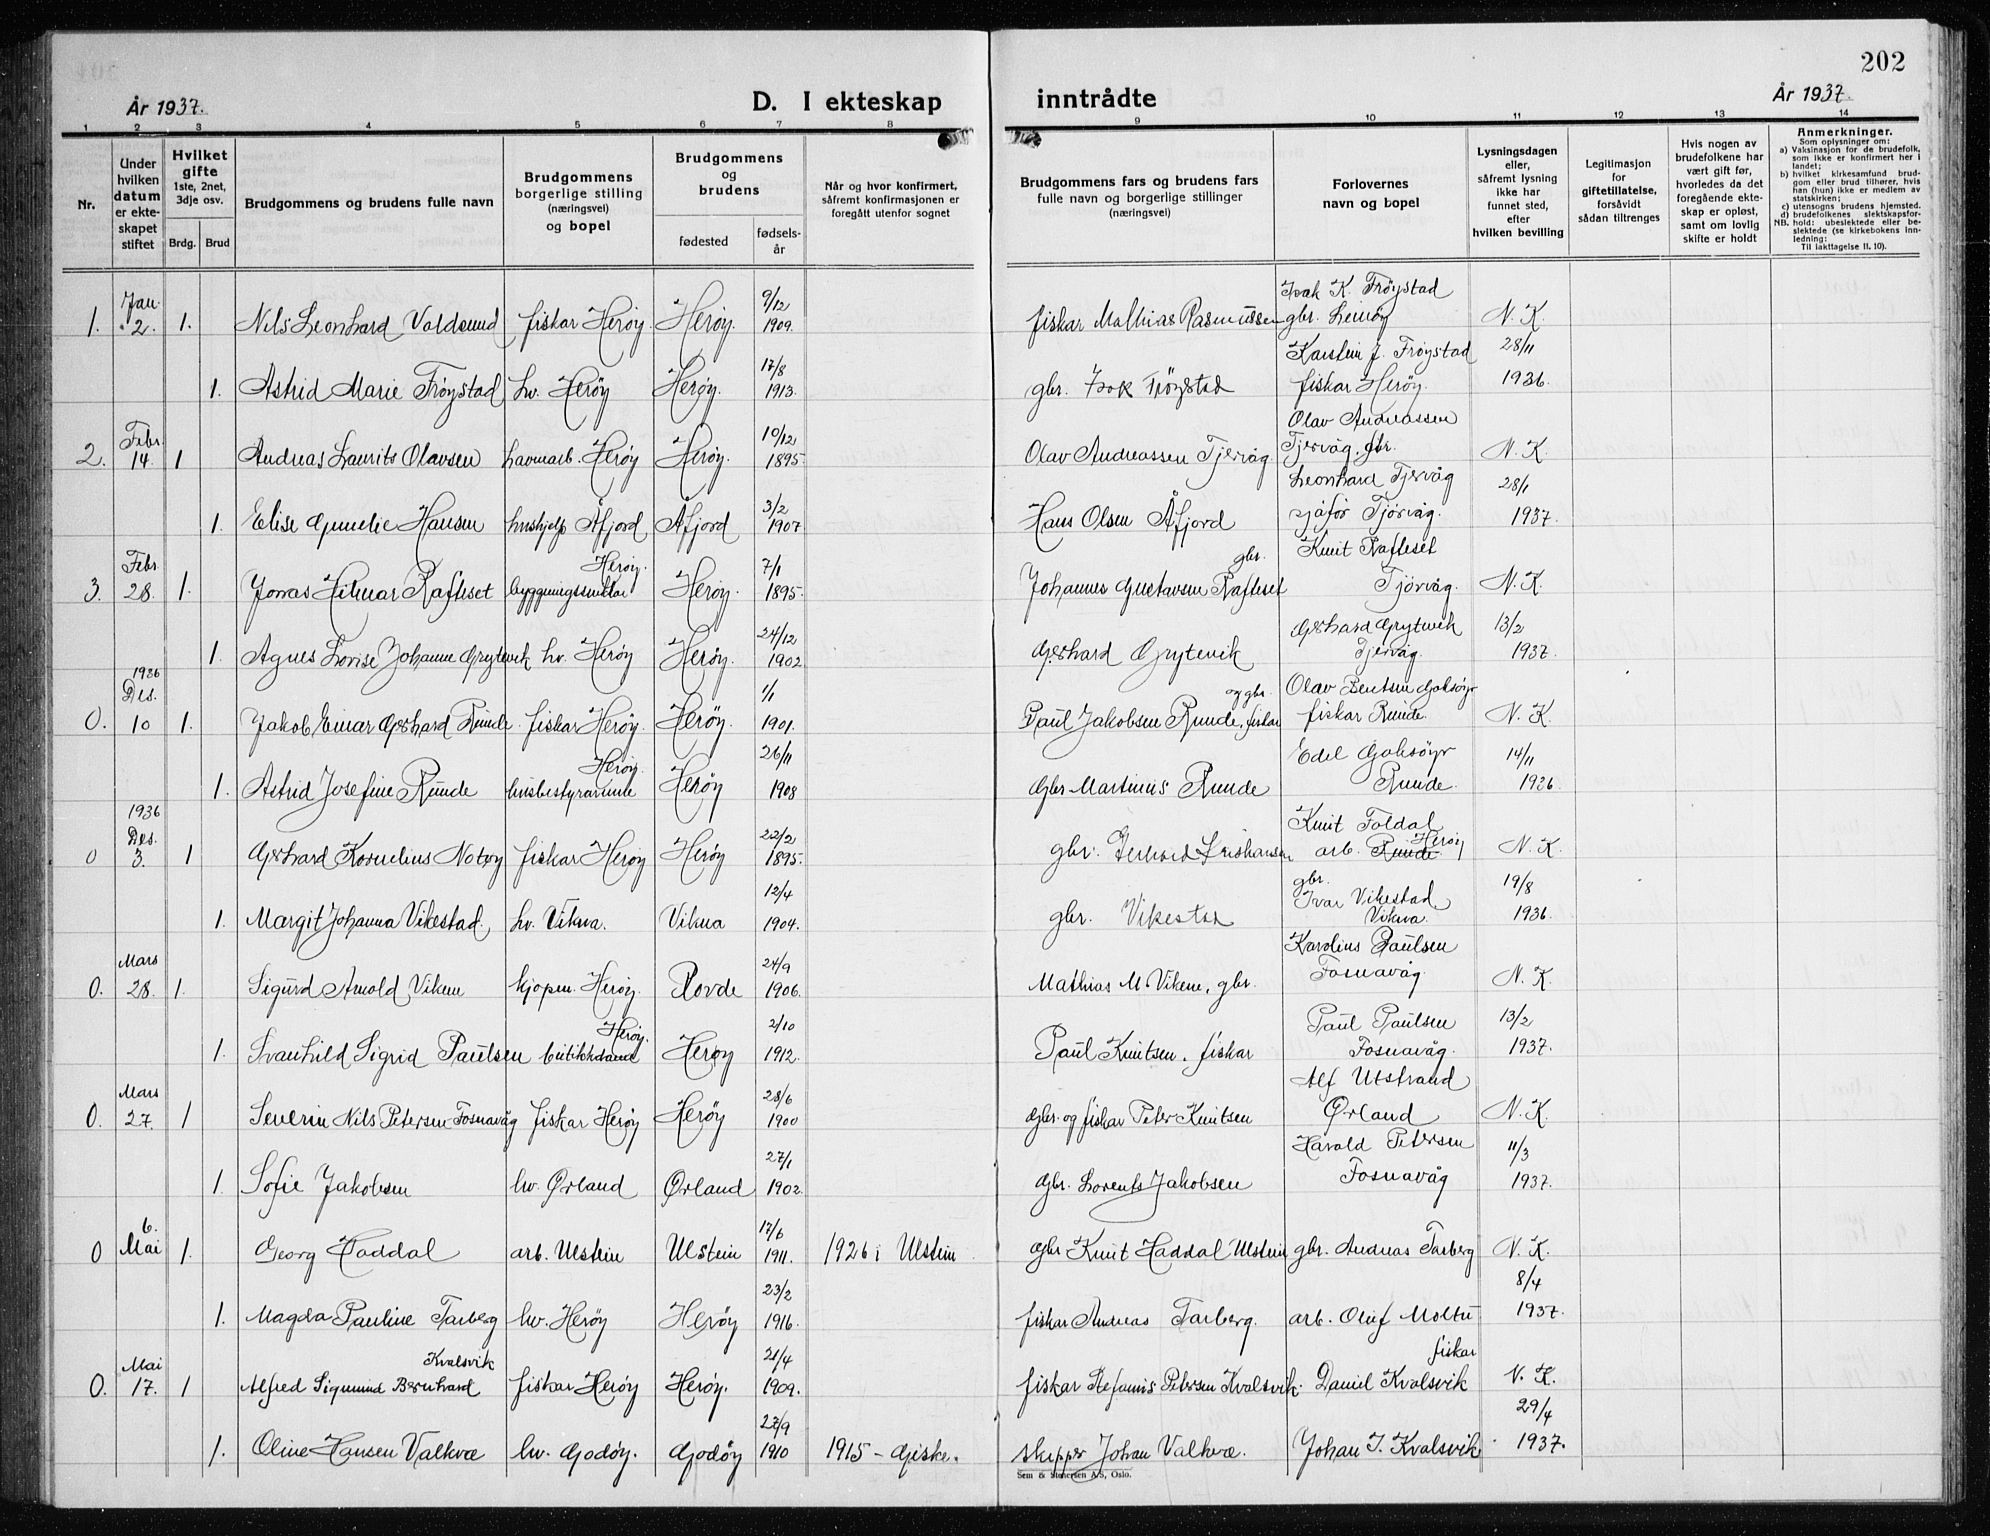 202
År 1937.
D. I ekteskap inntrådte
År 1937.
1 2 3 4 5 6 7 8 9 10 11 12 13 14
Nr.
Under hvilken datum er ekteskapet stiftet
Hvilket gifte 1ste, 2net, 3dje osv.
Brdg. Brud
Brudgommens og brudens fulle navn
Brudgommens borgerlige stilling (næringsvei) og bopel
Brudgommens og brudens
fødested
fødselsår
Når og hvor konfirmert, såfremt konfirmasjonen er foregått utenfor sognet
Brudgommens fars og brudens fars fulle navn og borgerlige stillinger (næringsvei)
Forlovernes navn og bopel
Lysningsdagen eller, såfremt lysning ikke har funnet sted, efter hvilken bevilling
Legitimasjon for giftetillatelse, forsåvidt sådan tiltrenges
Hvis nogen av brudefolkene har vært gift før, hvorledes da det foregående ekteskap er opløst, samt om lovlig skifte er holdt
Anmerkninger.
Som oplysninger om:
a) Vaksinasjon for de brudefolk, som ikke er konfirmert her i landet;
b) hvilket kirkesamfund brudgom eller brud tilhører, hvis han (hun) ikke er medlem av statskirken;
c) utensogns brudens hjemsted.
d) brudefolkenes slektskapsforhold: ubeslektede eller beslektede (se kirkebokens innledning:
NB.
Til iakttagelse II. 10).
1. Jan. 2. 1. Nils Leonhard Voldsund fiskar Herøy Herøy. 9/12 1909. fiskar Mathias Rasmussen Isak K. Frøystad gbr. Leinøy N. K.
1. Astrid Marie Frøystad hv. Herøy Herøy. 17/8 1913. gbr. Isak Frøystad Karstein J. Frøystad fiskar Herøy. 28/11 1936.
2. Febr. 14. 1 Andreas Laurits Olavsen havnarb. Herøy Herøy. 10/12 1895. Olav Andreassen Tjervåg Olav Andreassen Tjervåg. gbr. N. K.
1. Elise Gunelie Hansen hushjelp Åfjord Åfjord 3/2 1907 Hans Olsen Åfjord Leonhard Tjervåg sjåfør Tjørvåg. 28/1 1937.
3. Febr 28. 1. Jonas Hilmar Rafteset byggningssnikkar Herøy. Herøy. 7/1 1895. Johannes Gustavsen Rafteset gbr. Knut Rafteset Tjörvåg. N. K.
1. Agnes Lovise Johanne Grytevik hv. Herøy Herøy. 24/12 1902 Gerhard Grytevik Gerhard Grytevik Tjervåg. 13/2 1937.
0. 1936 Des. 10 1. Jakob Einar Gerhard Runde. fiskar Herøy. Herøy. 1/1 1901. Paul Jakobsen Runde, fiskar og gbr. Olav Bentsen Goksøyr fiskar Runde. N. K.
1. Astrid Josefine Runde husbestyrarinne Herøy. Herøy 26/11 1908 Gbr. Martinus Runde Edel Goksöyr Runde. 14/11 1936.
0 1936 Des. 3. 1 Gerhard Kornelius Notøy fiskar Herøy Herøy 22/2 1895. gbr. Gerhard Kristiansen Knut Foldal arb. Runde. Herøy N. K.
1. Margit Johanna Vikestad. hv. Vikna. Vikna 12/4 1904. gbr. Vikestad gbr. Ivar Vikestad Vikna. 19/8 1936.
0. Mars 28. 1. Sigurd Arnold Vikene kjøpm. Herøy. Rovde 24/9 1906. Mathias M Vikene, gbr. Karolius Paulsen Fosnavåg. N. K.
1. Svanhild Sigrid Paulsen butikkdame Herøy. Herøy 2/10 1912. Paul Knutsen. fiskar Paul Paulsen Fosnavåg. 13/2 1937.
0. Mars 27. 1 Severin Nils Petersen Fosnavåg fiskar Herøy Herøy 28/6 1900 Gbr. og fiskar Peter Knutsen Alf Utstrand Ørland N. K.
1. Sofie Jakobsen hv. Ørland Ørland 27/1 1902. Gbr. Lorents Jakobsen Harald Petersen Fosnavåg 11/3 1937.
0 6. Mai 1. Georg Haddal arb. Ulstein Ulstein 17/6 1911. 1926 i Ulstein Gbr Knut Haddal Ulstein gbr. Andreas Tarberg N. K.
1. Magda Pauline Tarberg hv. Herøy Herøy 23/2 1916. fiskar Andreas Tarberg. arb. Oluf Moltu 8/4 1937.
0. Mai 17. 1 Alfred Sigmund Bernhard Kvalsvik fiskar Herøy Herøy. 21/4 1909. fiskar Stefanus Petersen Kvalsvik. fiskar Daniel Kvalsvik N. K.
1. Oline Hansen Valkvæ hv. Godøy. Godøy 27/9 1910 1915 - Giske. skipper Johan Valkvæ. Johan J. Kvalsvik 29/4 1937.
Sem & Stenersen A/S, Oslo.